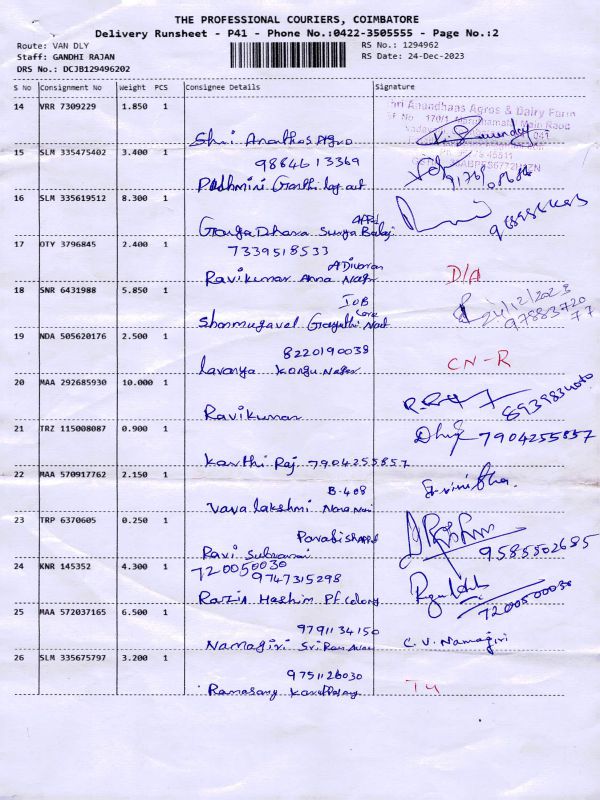 THE PROFESSIONAL COURIERS, COIMBATORE
Delivery Runsheet - P41 - Phone No.:0422-3505555 - Page No.:2
Route: VAN DLY
Staff: GANDHI RAJAN
DRS No.: DCJB129496202
RS No.: 1294962
RS Date: 24-Dec-2023
S No Consignment No Weight PCS Consignee Details Signature
14 VRR 7309229 1.850 1
Sri Anandhaas Agros & Dairy Farm
Shri
15 SLM 335475402 3.400 1
9864613369
Padhmini
16 SLM 335619512 8.300 1
Appt
Ganga Dhara Surya Balaji
17 OTY 3796845 2.400 1
7339518533
Ravikumar Anna Nagr
D/A
18 SNR 6431988 5.850 1
IOB
Shanmugavel Gayathi
24/12/2023
97883720
77
19 NDA 505620176 2.500 1
8220190038
Lavanya Kongu Nagar
CN-R
20 MAA 292685930 10.000 1
Ravikumar
21 TRZ 115008087 0.900 1
Karthi Raj 7904255857
7904255857
22 MAA 570917762 2.150 1
B-408
Vara lakshmi
23 TRP 6370605 0.250 1
Ravi
9585502685
24 KNR 145352 4.300 1
720050030
9747315298
Razia Hashim Pf Colony
7200500030
25 MAA 572037165 6.500 1
9791134150
Namagiri Sri Ram
C.V. Namagiri
26 SLM 335675797 3.200 1
9751126030
Ramasamy